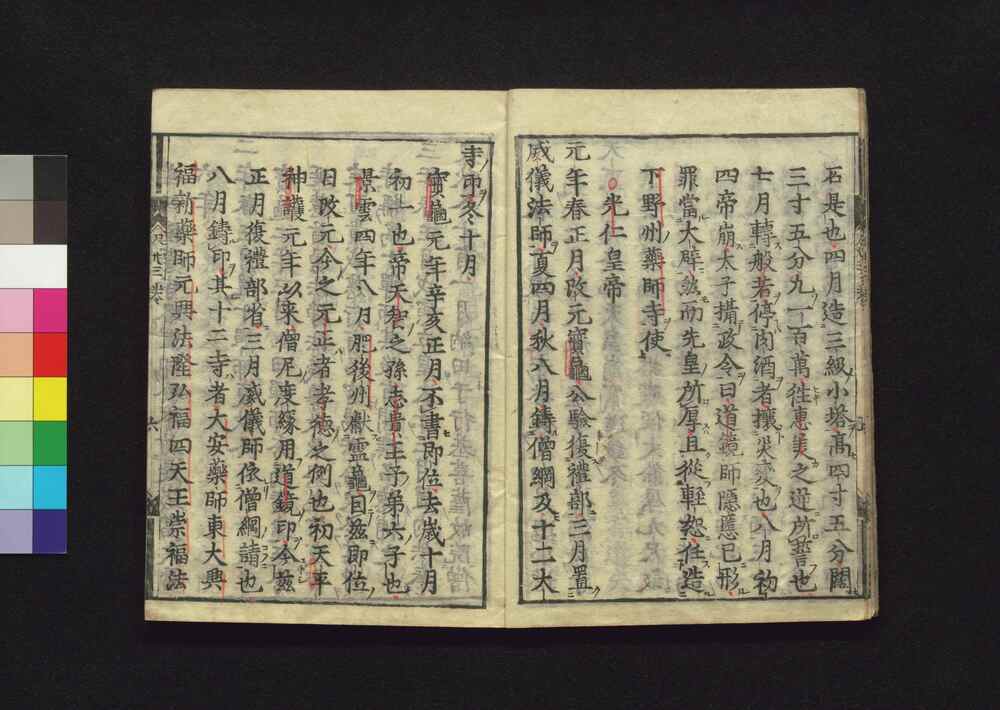 石是也四月造三級小塔高四寸五分闊
三寸五分九一百萬徃惠美之逆所誓也
七月轉般若停肉酒者攘災変也八月初
四帝崩太子攝政令曰道鏡師隱慝已形
罪當大辟然而先皇所厚且從輕恕任造
下野州藥師寺使
光仁皇帝
元年春正月改元寳龜公驗復禮部三月置
威儀法師夏四月秋八月鋳僧綱及十二大
寺印冬十月
寳龜元年辛亥正月不書即位去歳十月
初一也帝天智之孫志貴王子第六子也
景雲四年八月肥後州獻靈龜自茲即位
日改元今之元正者孝德之例也初天平
神護元年以來僧尼度縁用道鏡印今茲
正月復禮部省三月威儀師依僧綱請也
八月鋳印其十二寺者大安藥師東大興
福新藥師元興法隆弘福四天王崇福法
六